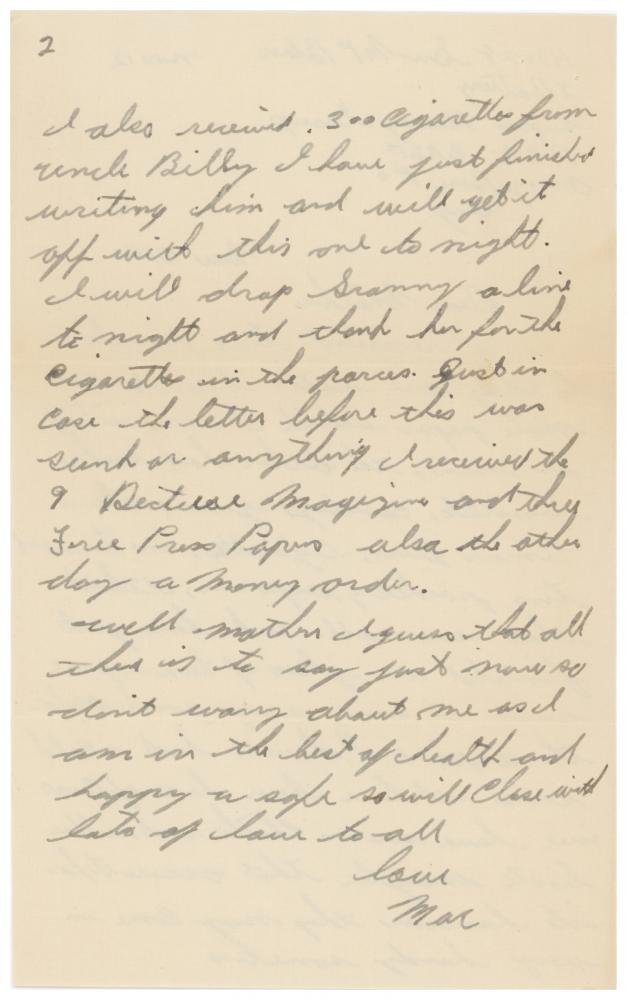 2
I also received. 300 Cigarettes from
uncle Billy I have just finished
writing him and will get it
off with this one to night.
I will drop Granny a line
to night and thank her for the
Cigarettes in the parces. Just in
Case the letter before this was
sunk or anything I received the
9 Magizine and three
Free Press Papers also the other
day a Money order.
well mother I guess that all
ther is to say just now so
don't worry about me as I
am in the best of health and
happy a safe so will Close with
lots of love to all
love
Mac